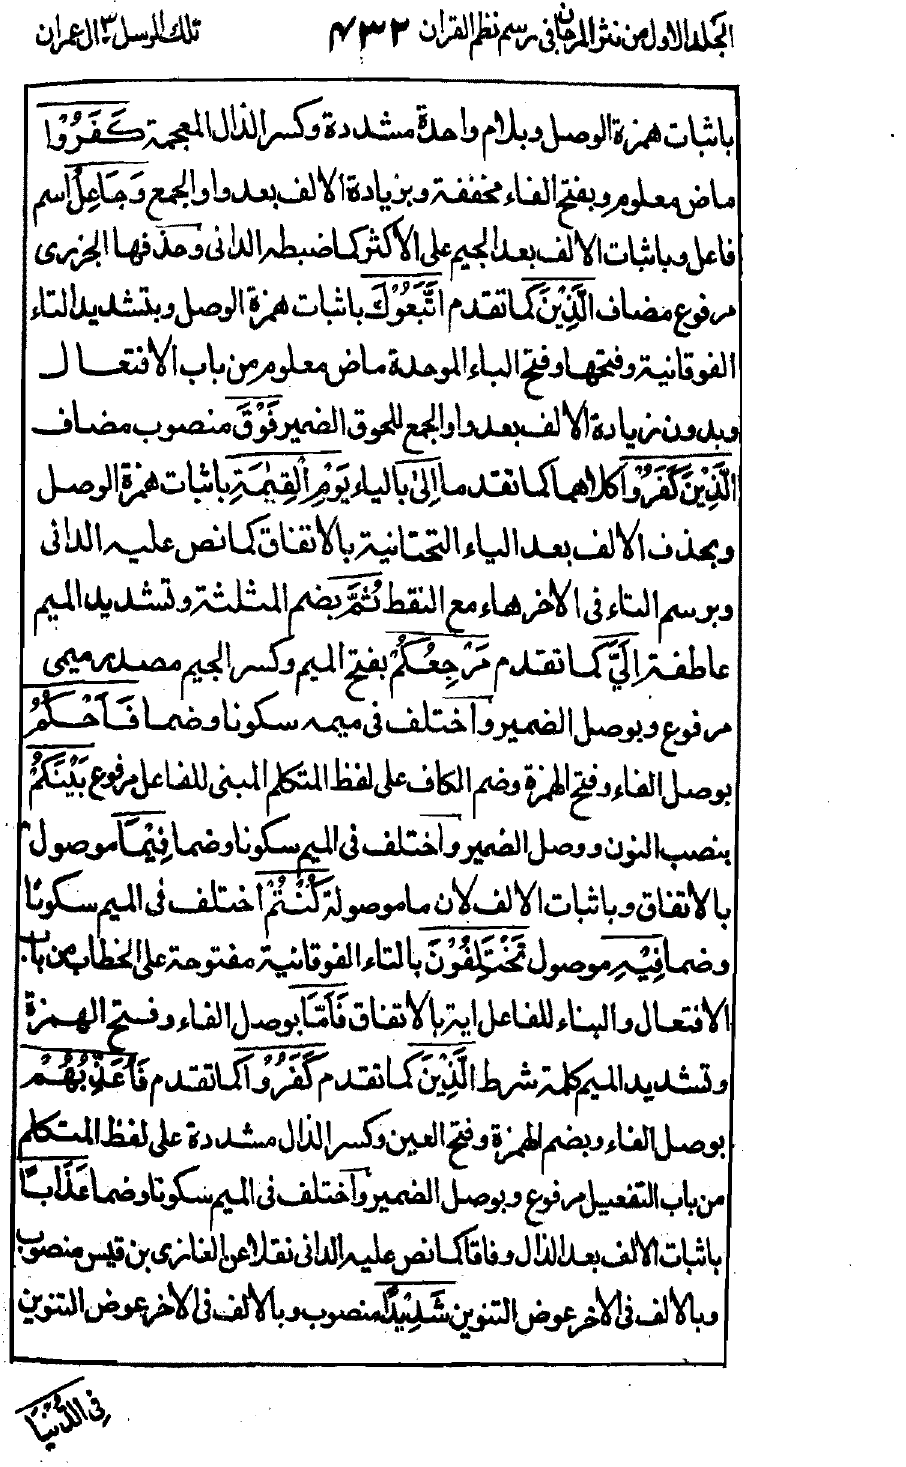 الجلد الاول من نثر المرجان فی رسم نظم القرآن ۴۳۲ تلک الرسل ۳ اٰل عمران
باثبات همزة الوصل وبلام واحدة مشددة وكسر الذال المعجمة كَفَرُوْا
ماض معلوم وبفتح الفاء مخففة وبزيادة الالف بعد واو الجمع وَجَاعِلُ اسم
فاعل وباثبات الالف بعد الجيم على الاكثر كما ضبطه الدانی وحذفها الجزری
مرفوع مضاف الَّذِيْنَ كما تقدم اتَّبَعُوْكَ باثبات همزة الوصل وبتشديد التاء
الفوقانية وفتحها وفتح الباء الموحدة ماض معلوم من باب الافتعال
وبدون زيادة الالف بعد واو الجمع للحوق الضمير فَوْقَ منصوب مضاف
الَّذِيْنَ كَفَرُوْا كلاهما كما تقدما اِلٰى بالياء يَوْمِ الْقِيٰمَةِ باثبات همزة الوصل
وبحذف الالف بعد الياء التحتانية بالاتفاق كما نص عليه الدانی
وبرسم التاء فی الاخر هاء مع النقط ثُمَّ بضم المثلثة وتشديد الميم
عاطفة اِلَيَّ كما تقدم مَرْجِعُكُمْ بفتح الميم وكسر الجيم مصدر ميمی
مرفوع وبوصل الضمير واختلف فی ميمه سكونا وضما فَاَحْكُمُ
بوصل الفاء وفتح الهمزة وضم الكاف على لفظ المتكلم المبنی للفاعل مرفوع بَيْنَكُمْ
بنصب النون ووصل الضمير واختلف فی الميم سكونا وضما فِيْمَا موصول
بالاتفاق وباثبات الالف لان ما موصولة كُنْتُمْ اختلف فی الميم سكونا
وضما فِيْهِ موصول تَخْتَلِفُوْنَ بالتاء الفوقانية مفتوحة على الخطاب من باب
الافتعال والبناء للفاعل اية بالاتفاق فَاَمَّا بوصل الفاء وفتح الهمزة
وتشديد الميم كلمة شرط الَّذِيْنَ كما تقدم كَفَرُوْا كما تقدم فَاُعَذِّبُهُمْ
بوصل الفاء وبضم الهمزة وفتح العين وكسر الذال مشددة على لفظ المتكلم
من باب التفعيل مرفوع وبوصل الضمير واختلف فی الميم سكونا وضما عَذَابًا
باثبات الالف بعد الذال وفاقا كما نص عليه الدانی نقلا عن الغازی بن قيس منصوب
وبالالف فی الاخر عوض التنوين شَدِيْدًا منصوب وبالالف فی الاخر عوض التنوين
فِی الدُّنْيَا